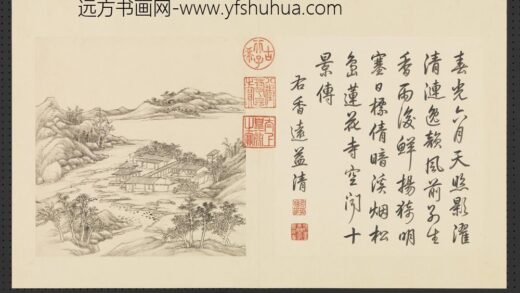 远方书画网-www.yfshuhua.com
春光六月天照影濯
清漣逸韻風前別生
香雨後鮮揚猗明
塞日標倩暗溪烟松
島蓮花寺空聞十
景傳
右香遠益清